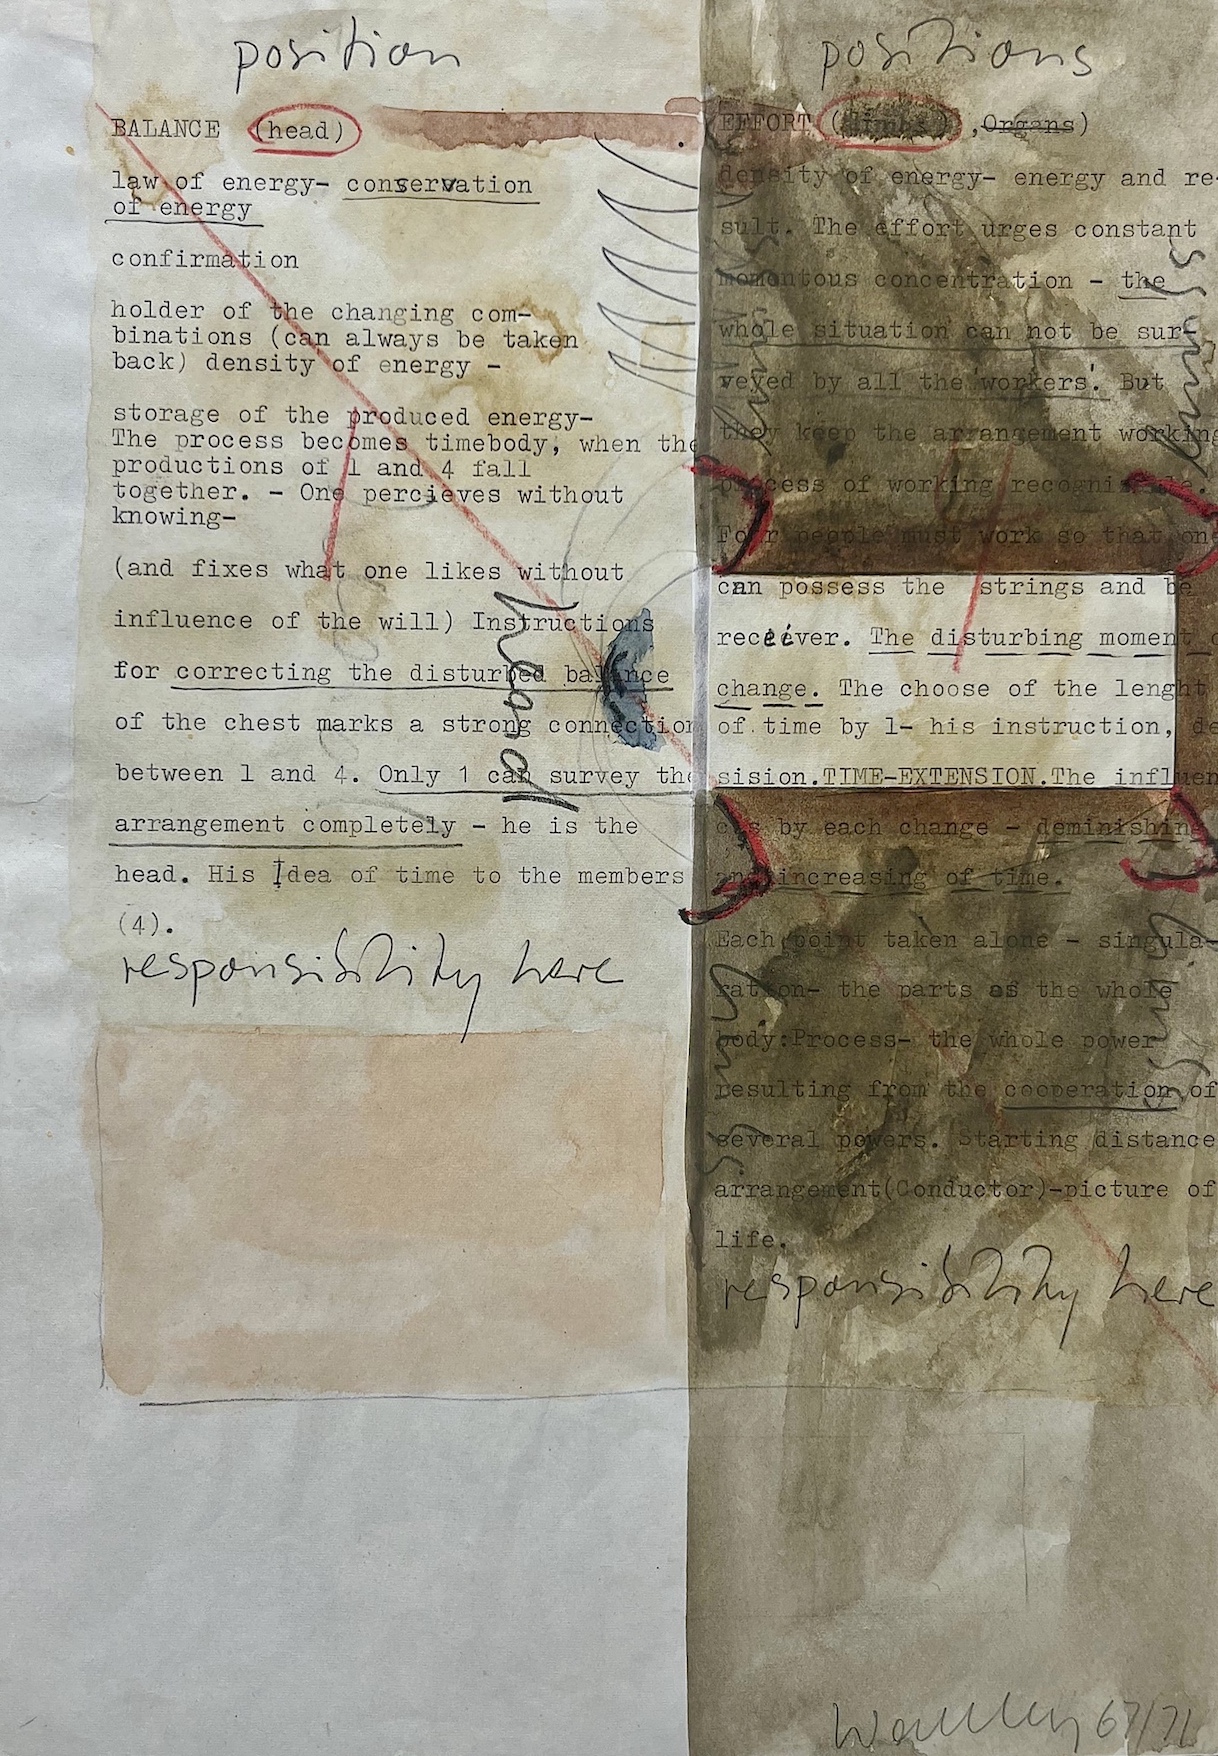 position
BALANCE (head)
law of energy- conservation
of energy
confirmation
holder of the changing com-
binations (can always be taken
back) density of energy -
storage of the produced energy-
The process becomes timebody, when the
productions of 1 and 4 fall
together. - One percieves without
knowing-
(and fixes what one likes without
influence of the will) Instructions
for correcting the disturbed balance
of the chest marks a strong connection
between 1 and 4. Only 1 can survey the
arrangement completely - he is the
head. His Idea of time to the members
(4).
responsibility here
head
positions
EFFORT (limbs) ,Organs)
density of energy- energy and re-
sult. The effort urges constant
momentous concentration - the
whole situation can not be sur-
veyed by all the 'workers'. But
they keep the arrangement working
process of working recognisable.
Four people must work so that one
can possess the strings and be
receiver. The disturbing moment
change. The choose of the lenght
of time by 1- his instruction, de
sision.TIME-EXTENSION.The influen
ces by each change - deminishing
and increasing of time.
Each point taken alone - singula-
ration- the parts as the whole
body:Process- the whole power
resulting from the cooperation of
several powers. Starting distance
arrangement(Conductor)-picture of
life.
responsibility here
67/71